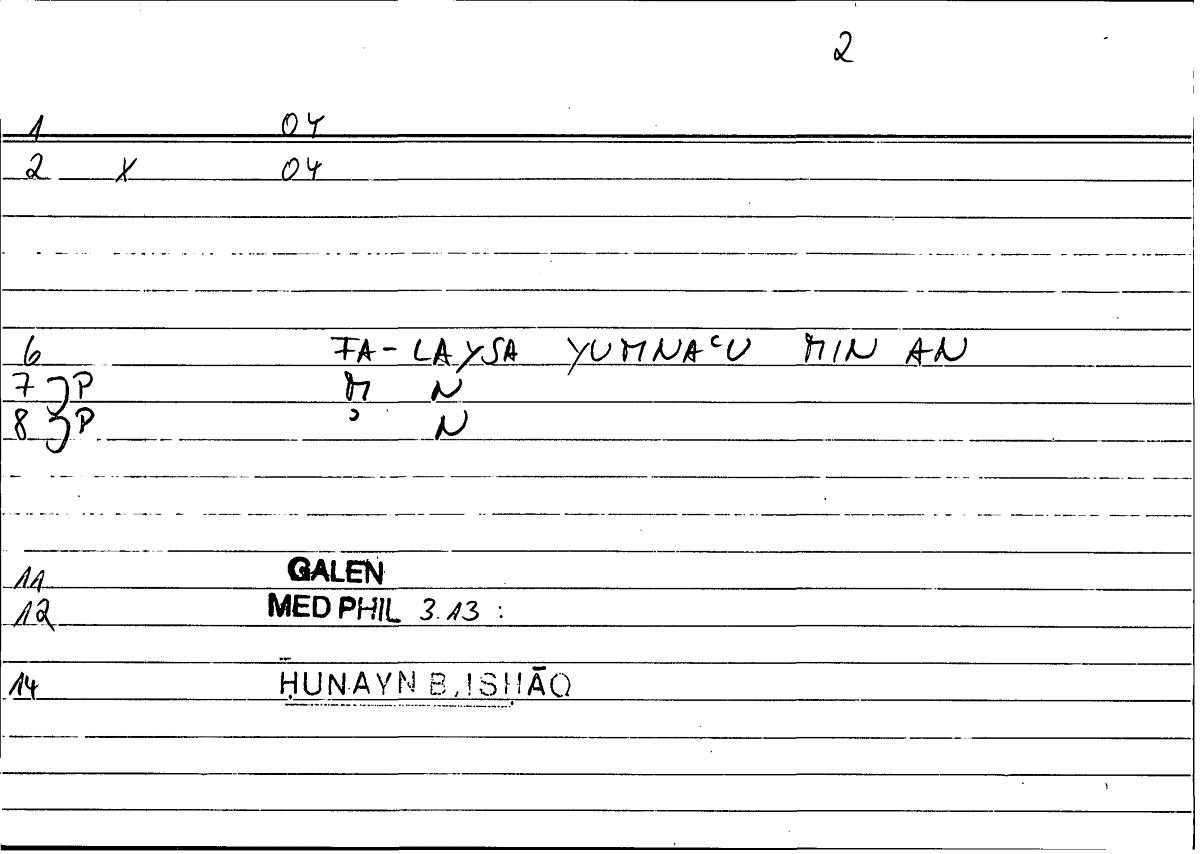 2
1 04
2 X 04
6 FA-LAYSA YUMNAʿU MIN AN
7 P M N
8 P ʾ N
11 GALEN
12 MED PHIL 3.13 :
14 ḤUNAYN B. ISḤĀQ